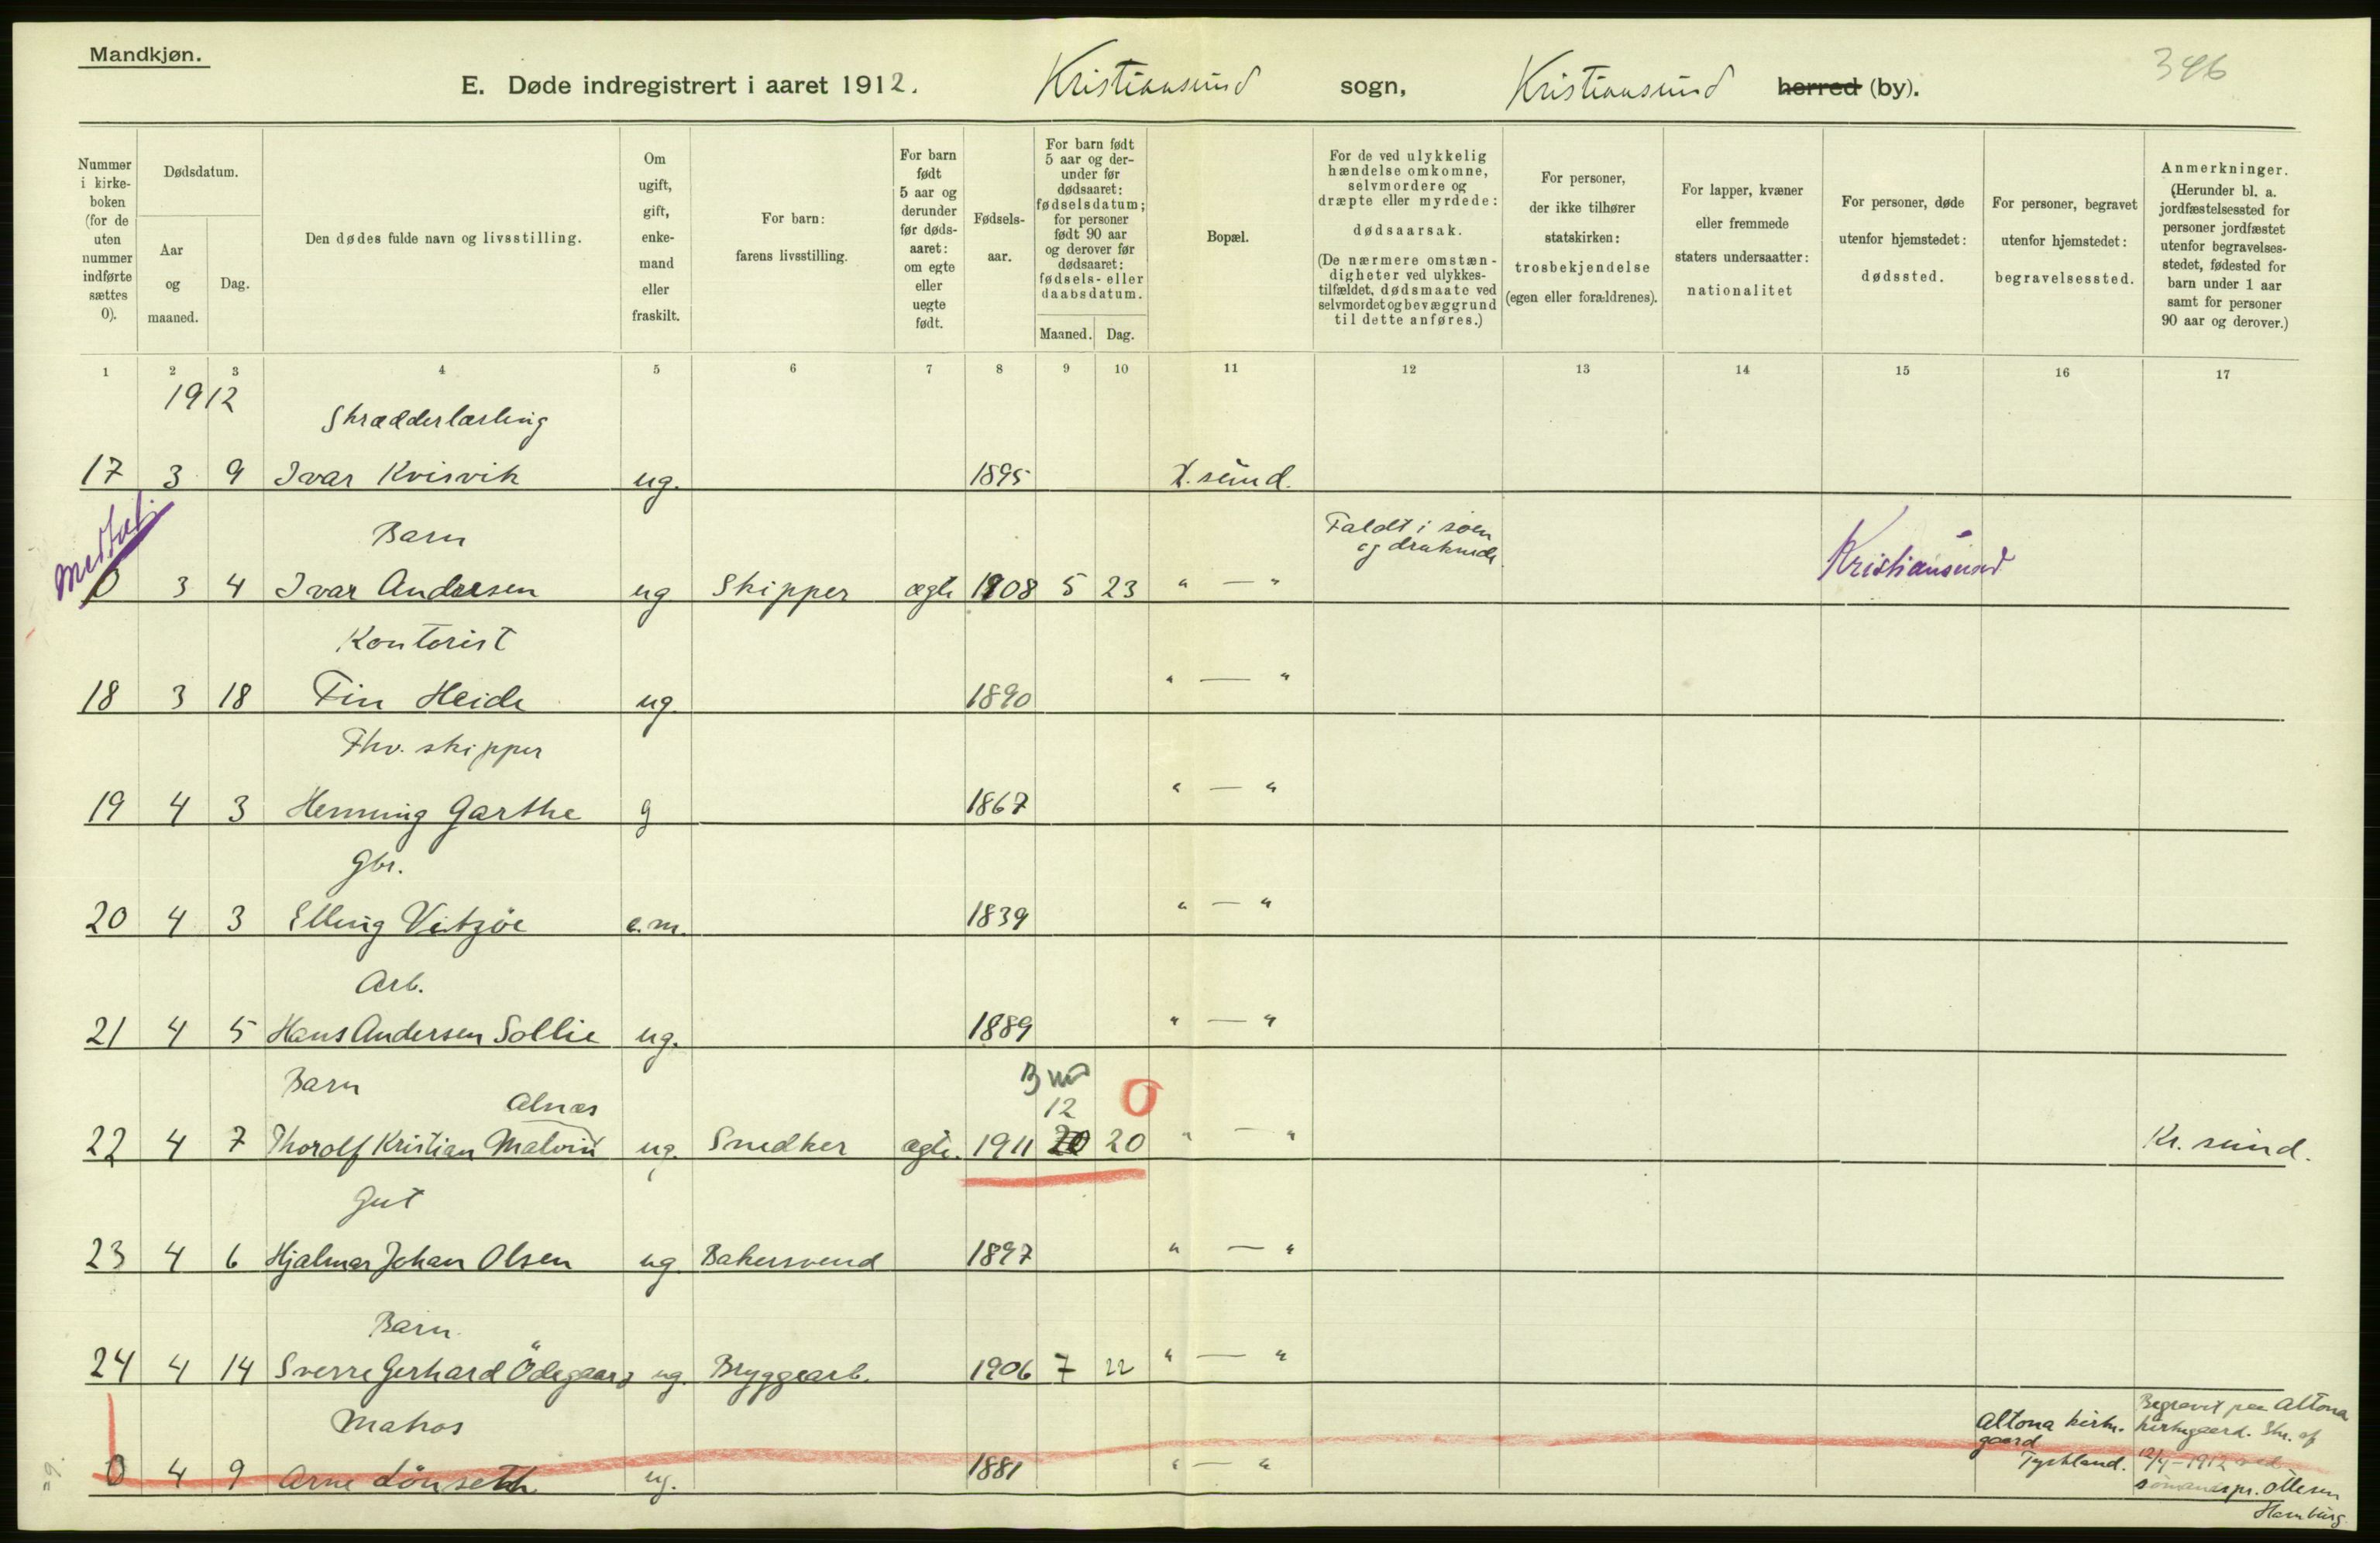 Mandkjøn.
E. Døde indregistrert i aaret 1912. Kristiansund sogn, Kristiansund herred (by).
346
Nummer i kirkeboken (for de uten nummer indførte sættes 0).
Dødsdatum.
Aar og maaned.
Dag.
Den dødes fulde navn og livsstilling.
Om ugift, gift, enkemand eller fraskilt.
For barn: farens livsstilling.
For barn født 5 aar og derunder før dødsaaret: om egte eller uegte født.
Fødselsaar.
For barn født 5 aar og derunder før dødsaaret: fødselsdatum; for personer født 90 aar og derover før dødsaaret: fødsels- eller daabsdatum.
Maaned. Dag.
Bopæl.
For de ved ulykkelig hændelse omkomne, selvmordere og dræpte eller myrdede: dødsaarsak.
(De nærmere omstændigheter ved ulykkestilfældet, dødsmaate ved selvmordet og bevæggrund til dette anføres.)
For personer, der ikke tilhører statskirken: trosbekjendelse (egen eller forældrenes).
For lapper, kvæner eller fremmede staters undersaatter: nationalitet
For personer, døde utenfor hjemstedet: dødssted.
For personer, begravet utenfor hjemstedet: begravelsessted.
Anmerkninger.
(Herunder bl. a. jordfæstelsessted for personer jordfæstet utenfor begravelsesstedet, fødested for barn under 1 aar samt for personer 90 aar og derover.)
1 2 3 4 5 6 7 8 9 10 11 12 13 14 15 16 17
1912
Skrædderlærling
17 3 9 Ivar Kvisvik ug. 1895 K.sund.
Barn Faldt i søen og druknede
0 3 4 Ivar Andersen ug Skipper ægte 1908 5 23 " — " Kristiansund
Kontorist
18 3 18 Fin Heide ug. 1890 " — "
Fhv. skipper
19 4 3 Henning Garthe g 1867 " — "
Gbr.
20 4 3 Elling Vitzøe e.m. 1839 " — "
Arb.
21 4 5 Hans Andersen Sollie ug. 1889 " — "
Barn Alnæs 12 0
22 4 7 Thorolf Kristian Malvin ug. Snedker ægte. 1911 20 20 " — " Kr. sund.
Gut
23 4 6 Hjalmar Johan Olsen ug. Bakersvend 1897 " — "
Barn
24 4 14 Sverre Gerhard Ödegaard ug. Bryggearb. 1906 7 22 " — "
Matros
0 4 9 Arne Lönseth ug. 1881 " — "
Altona kirkegaard Tyskland.
Begravet paa Altona kirkegaard. Skr. af 12/4-1912 ved sömandspr. Ottesen Hamburg